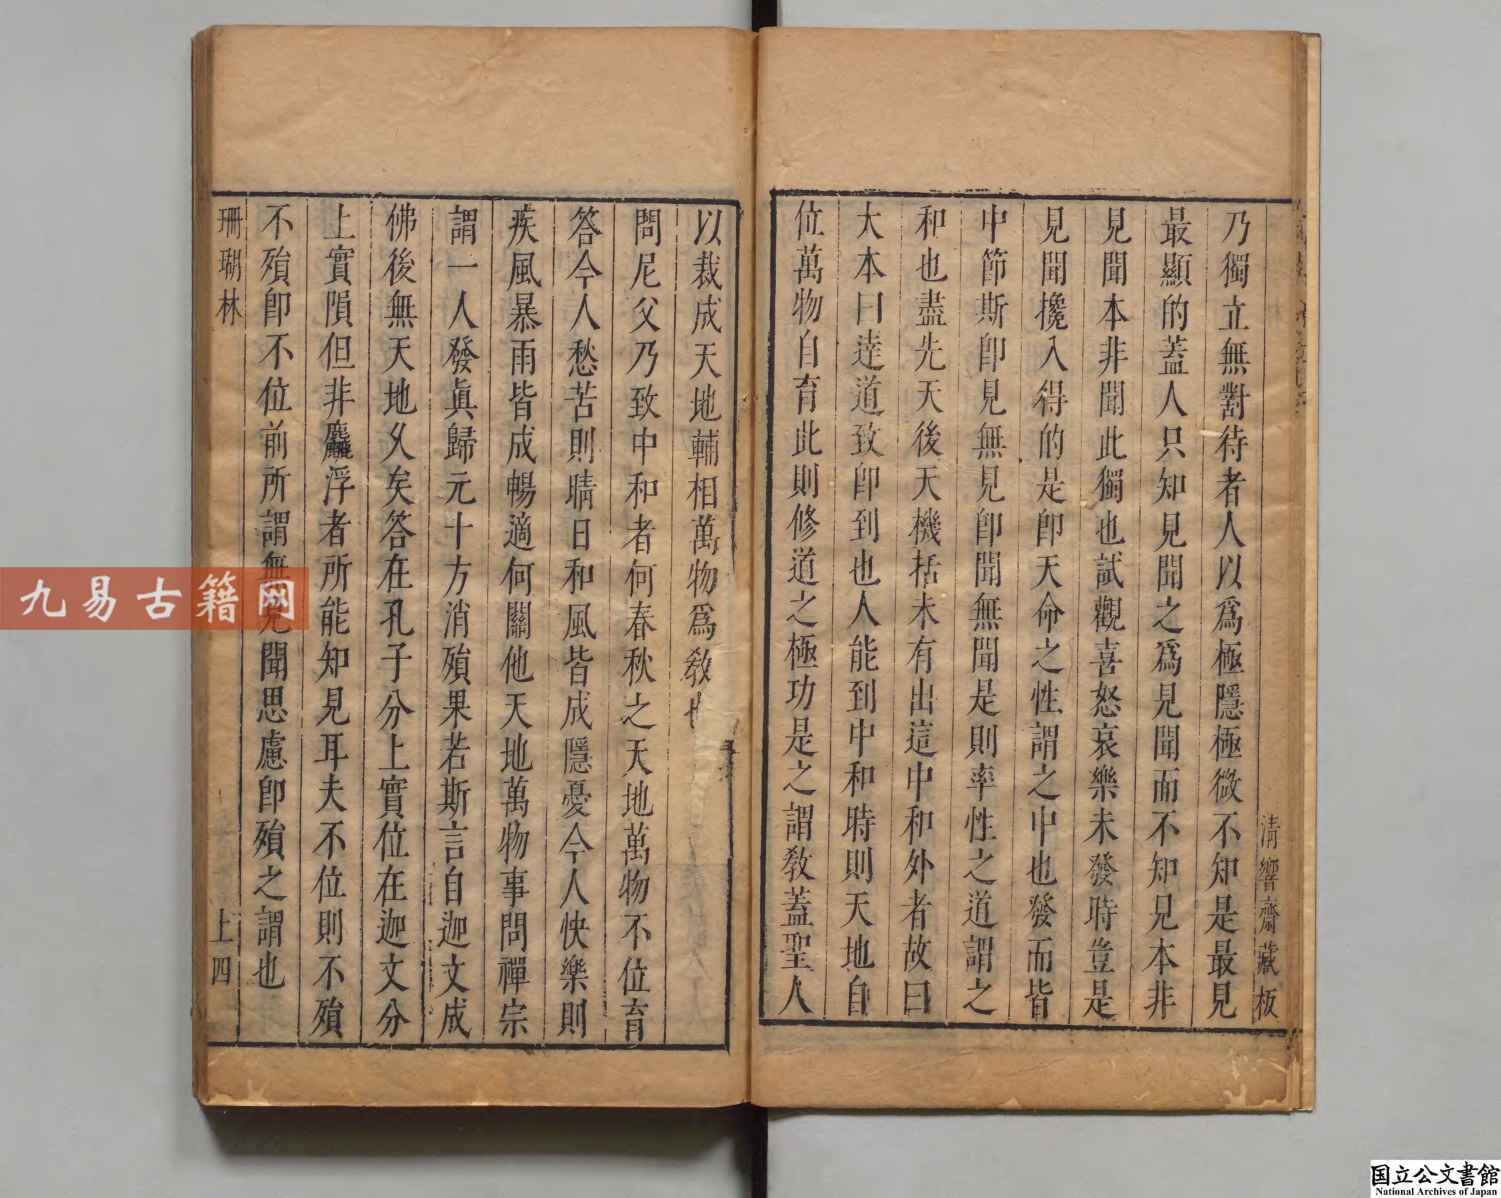 清響齋藏板
乃獨立無對待者人以爲極隱極微不知是最見
最顯的蓋人只知見聞之爲見聞而不知見本非
見聞本非聞此獨也試觀喜怒哀樂未發時豈是
見聞攙入得的是卽天命之性謂之中也發而皆
中節斯卽見無見卽聞無聞是則率性之道謂之
和也盡先天後天機括未有出這中和外者故曰
大本曰達道致卽到也人能到中和時則天地自
位萬物自育此則修道之極功是之謂敎蓋聖人
以裁成天地輔相萬物爲敎也
問尼父乃致中和者何春秋之天地萬物不位育
答今人愁苦則晴日和風皆成隱憂今人快樂則
疾風暴雨皆成暢適何關他天地萬物事問禪宗
謂一人發眞歸元十方消殞果若斯言自迦文成
佛後無天地久矣答在孔子分上實位在迦文分
上實隕但非麤浮者所能知見耳夫不位則不殞
不殞卽不位前所謂無見聞思慮卽殞之謂也
珊瑚林
上四
九易古籍网
国立公文書館
National Archives of Japan